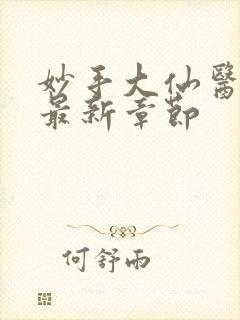 妙手大仙醫
最新章節
何舒雨